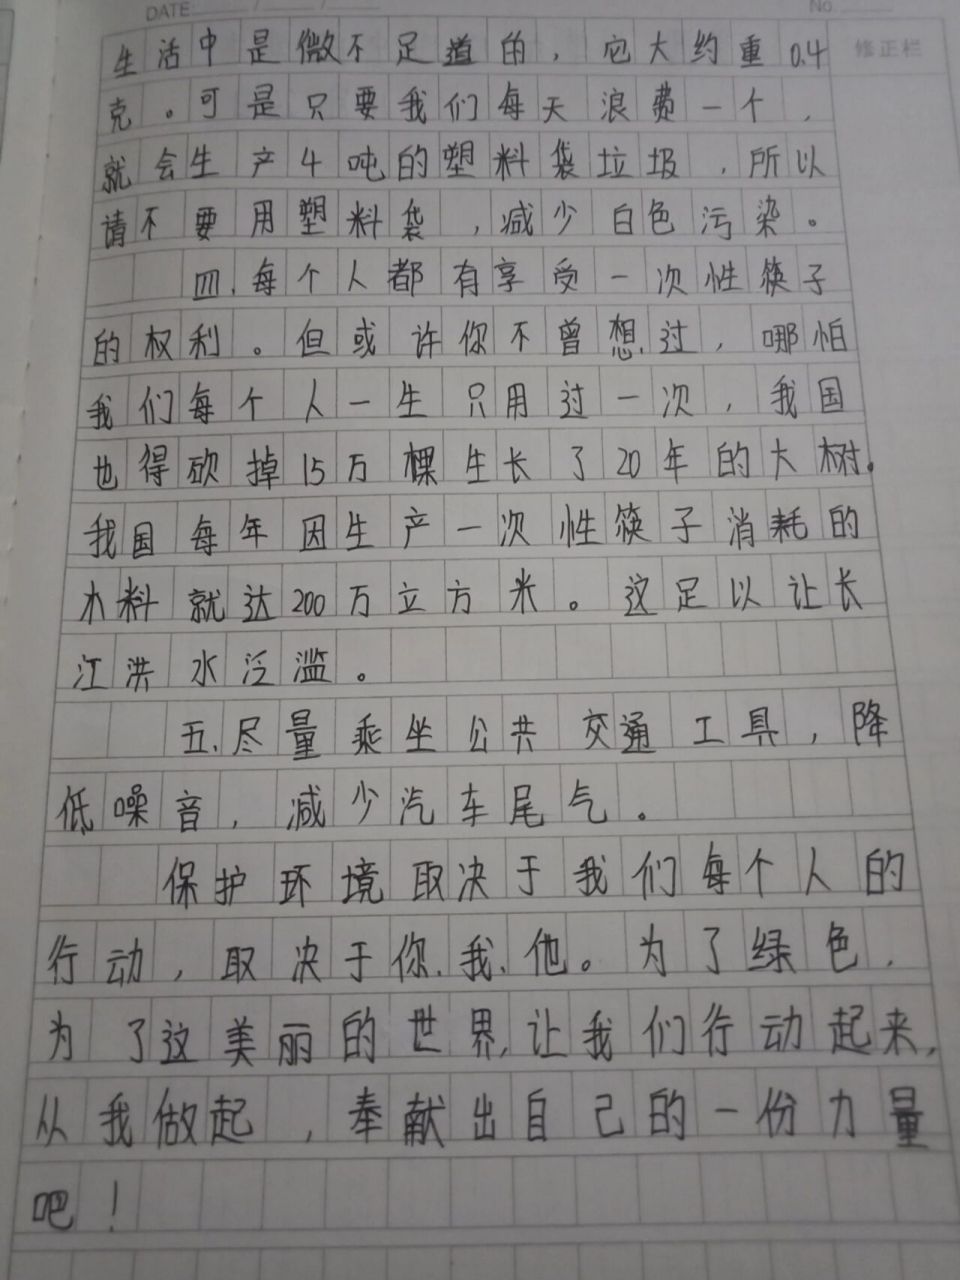 DATE / / No.
修正栏
生活中是微不足道的，它大约重0.4
克。可是只要我们每天浪费一个，
就会生产4吨的塑料袋垃圾，所以
请不要用塑料袋，减少白色污染。
四、每个人都有享受一次性筷子
的权利。但或许你不曾想过，哪怕
我们每个人一生只用过一次，我国
也得砍掉15万棵生长了20年的大树。
我国每年因生产一次性筷子消耗的
木料就达200万立方米。这足以让长
江洪水泛滥。
五、尽量乘坐公共交通工具，降
低噪音，减少汽车尾气。
保护环境取决于我们每个人的
行动，取决于你、我、他。为了绿色，
为了这美丽的世界，让我们行动起来，
从我做起，奉献出自己的一份力量
吧！